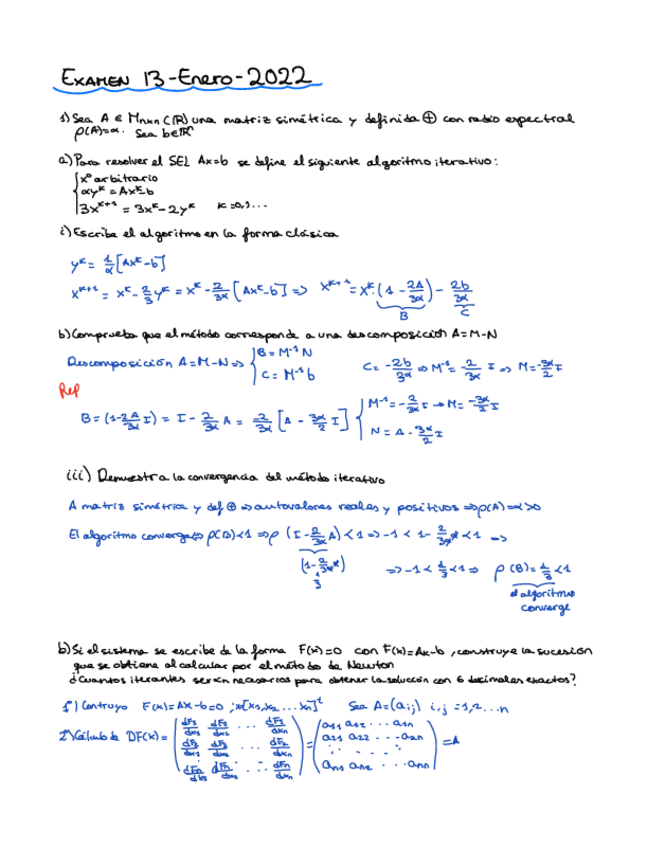 EXAMEN 13-Enero-2022
1) Sea A ∈ Mnxn(ℝ) una matriz simétrica y definida ⊕ con radio espectral
ρ(A)=α. Sea b∈ℝⁿ
a) Para resolver el SEL Ax=b se define el siguiente algoritmo iterativo:
x⁰ arbitrario
αyᵏ = Axᵏ-b
3xᵏ⁺¹ = 3xᵏ-2yᵏ k=0,1...
i) Escribe el algoritmo en la forma clásica
yᵏ = 1/α [Axᵏ-b]
xᵏ⁺¹ = xᵏ - 2/3 yᵏ = xᵏ - 2/3α [Axᵏ-b] => xᵏ⁺¹ = xᵏ(1 - 2A/3α) - 2b/3α
B C
b) Comprueba que el método corresponde a una descomposición A=M-N
Descomposición A=M-N => { B = M⁻¹N C = M⁻¹b C = -2b/3α => M⁻¹ = -2/3α I => M = -3α/2 I
Rep
B = (1-2A/3α I) = I - 2/3α A = -2/3α [A - 3α/2 I] { M⁻¹ = -2/3α I → M = -3α/2 I
N = A - 3α/2 I
iii) Demuestra la convergencia del método iterativo
A matriz simétrica y def ⊕ => autovalores reales y positivos => ρ(A)=α>0
El algoritmo converge <=> ρ(B)<1 => ρ (I - 2/3α A) < 1 => -1 < 1 - 2/3α α < 1 =>
(1 - 2/3α α) => -1 < 1/3 < 1 => ρ(B) = 1/3 < 1
1/3 el algoritmo
converge
b) Si el sistema se escribe de la forma F(x)=0 con F(x)=Ax-b, construye la sucesión
que se obtiene al calcular por el método de Newton
¿Cuantos iterantes serán necesarios para obtener la solución con 6 decimales exactos?
1º) Contruyo F(x)=Ax-b=0 ; x[x1,x2...xn]ᵗ Sea A=(aij) i,j =1,2...n
2º) Cálculo de DF(x) = (dF1/dx1 dF1/dx2 ... dF1/dxn = (a11 a12 ... a1n = A
dF2/dx1 dF2/dx2 ... dF2/dxn a21 a22 ... a2n
dFn/dx1 dFn/dx2 ... dFn/dxn) an1 an2 ... ann)